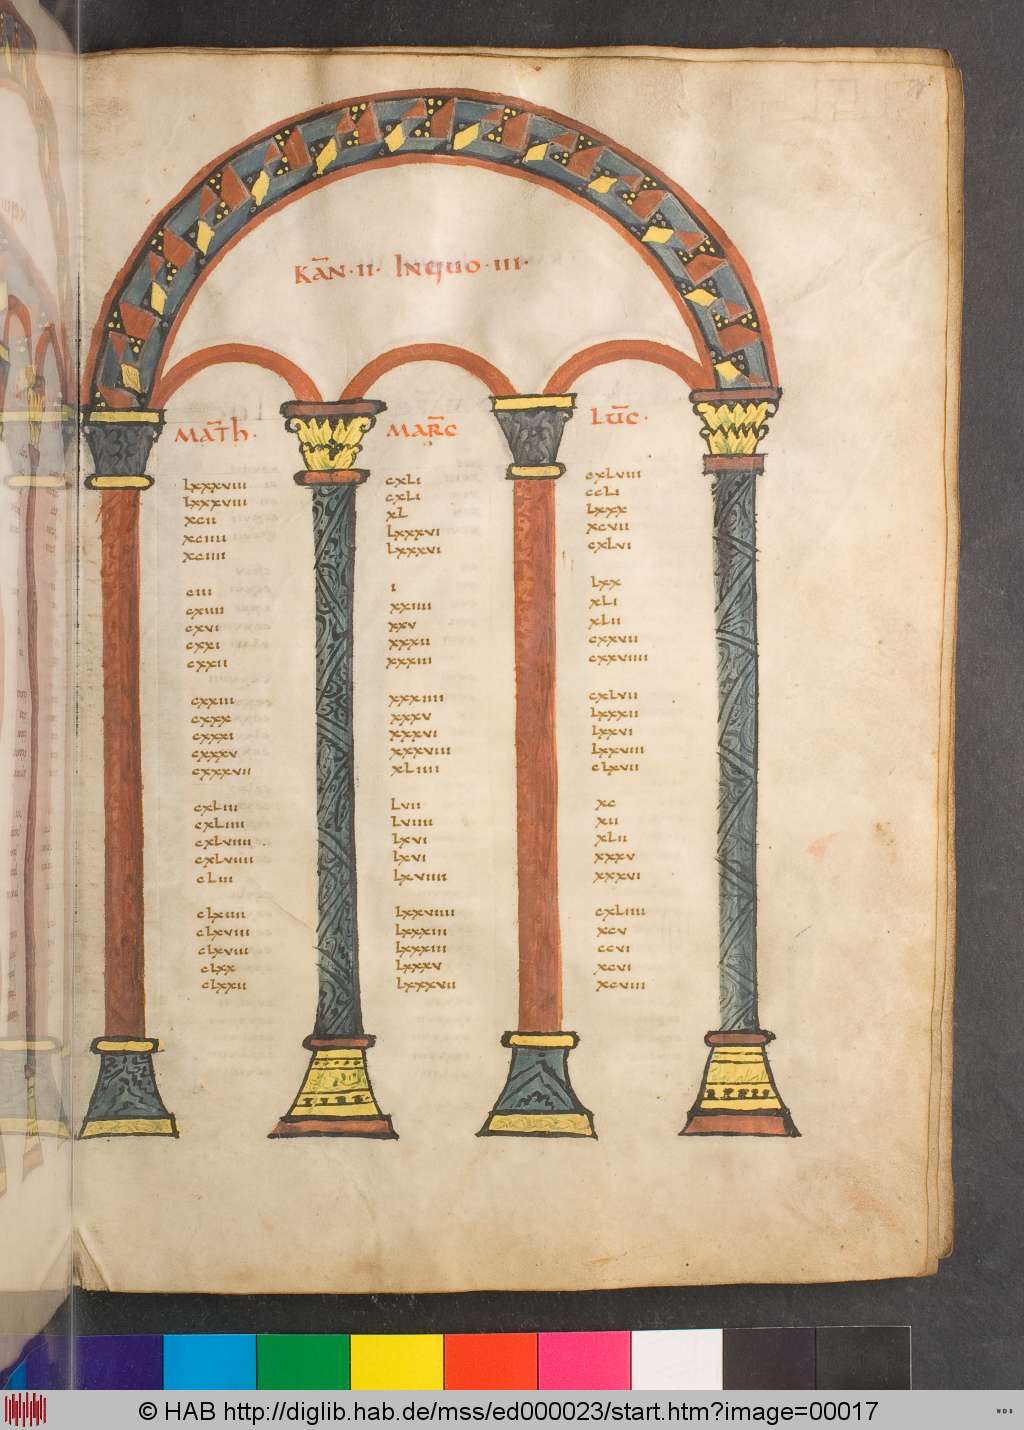 KAN̄·II· INQUO·III·
MAT̄h·
MAR̄C
LUC̄·
lxxxviii cxli cxlviii
lxxxviii cxli ccli
xcii xl lxxx
xciiii lxxxvi xcvii
xciiii lxxxvi cxlvi
ciii i lxx
cxiiii xxiiii xli
cxvi xxv xlii
cxxi xxxii cxxvii
cxxii xxxiii cxxviiii
cxxiii xxxiiii cxlvii
cxxx xxxv lxxxii
cxxxi xxxvi lxxvi
cxxxv xxxviii lxxviii
cxxxvii xliiii clxvii
cxliii lvii xc
cxliiii lviiii xii
cxlviiii lxvi xlii
cxlviiii lxvi xxxv
cliii lxviiii xxxvi
clxiiii lxxviiii cxliiii
clxviii lxxxiii xcv
clxviii lxxxiii ccvi
clxx lxxxv xcvi
clxxii lxxxvii xcviii
© HAB http://diglib.hab.de/mss/ed000023/start.htm?image=00017
WDB